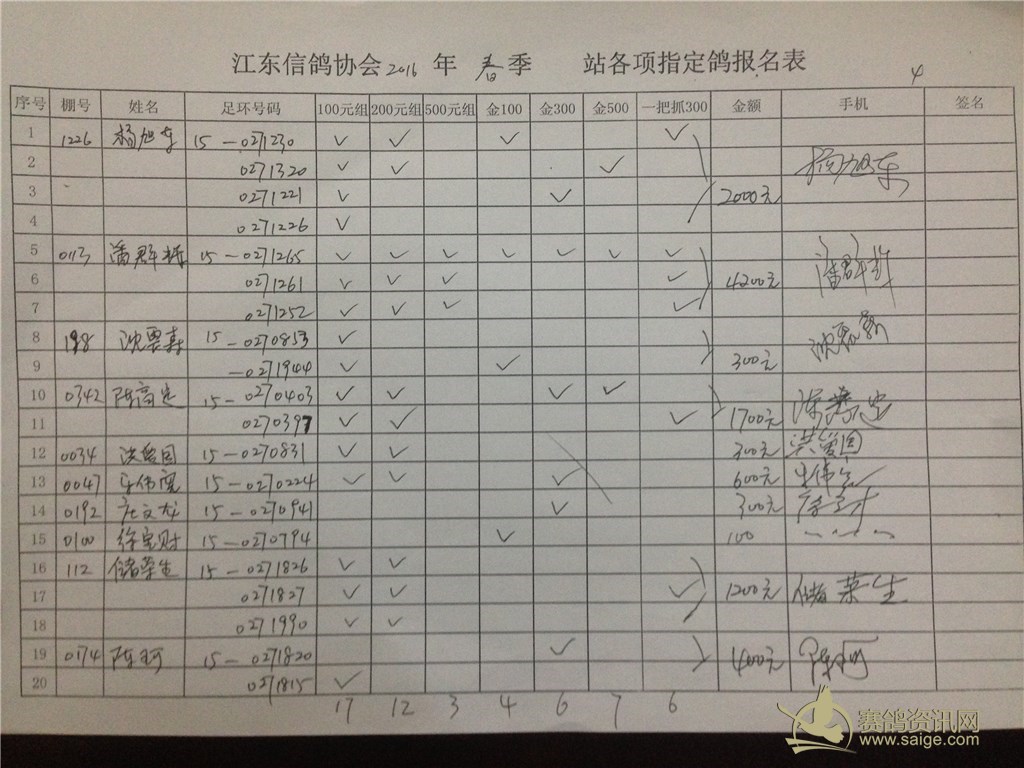 江东信鸽协会2016年 春季 站各项指定鸽报名表
4
序号 棚号 姓名 足环号码 100元组 200元组 500元组 金100 金300 金500 一把抓300 金额 手机 签名
1 1226 杨旭东 15-0271230 ✓ ✓ ✓ ✓
2 0271320 ✓ ✓ ✓ 杨旭东
3 0271221 ✓ ✓ 2000元
4 0271226 ✓
5 0113 潘群 15-0271265 ✓ ✓ ✓ ✓ ✓ ✓ ✓
6 0271261 ✓ ✓ ✓ ✓ 4200元 潘群
7 0271252 ✓ ✓ ✓ ✓
8 198 沈 15-0270853 ✓ 沈
9 -0271944 ✓ ✓ 300元
10 0342 陈 15-0270403 ✓ ✓ ✓ ✓
11 0270397 ✓ ✓ ✓ 1700元 陈
12 0034 洪 国 15-0270831 ✓ ✓ 300元 洪 国
13 0047 伟 15-0270224 ✓ ✓ ✓ 600元 伟
14 0192 文龙 15-0270941 ✓ 300元
15 0100 徐宝财 15-0270794 ✓ 100
16 112 储荣生 15-0271826 ✓ ✓
17 0271827 ✓ ✓ ✓ 1200元 储荣生
18 0271990 ✓ ✓
19 0174 陈 15-0271820 ✓ 400元 陈
20 0271815 ✓
17 12 3 4 6 7 6
赛鸽资讯网
www.saige.com